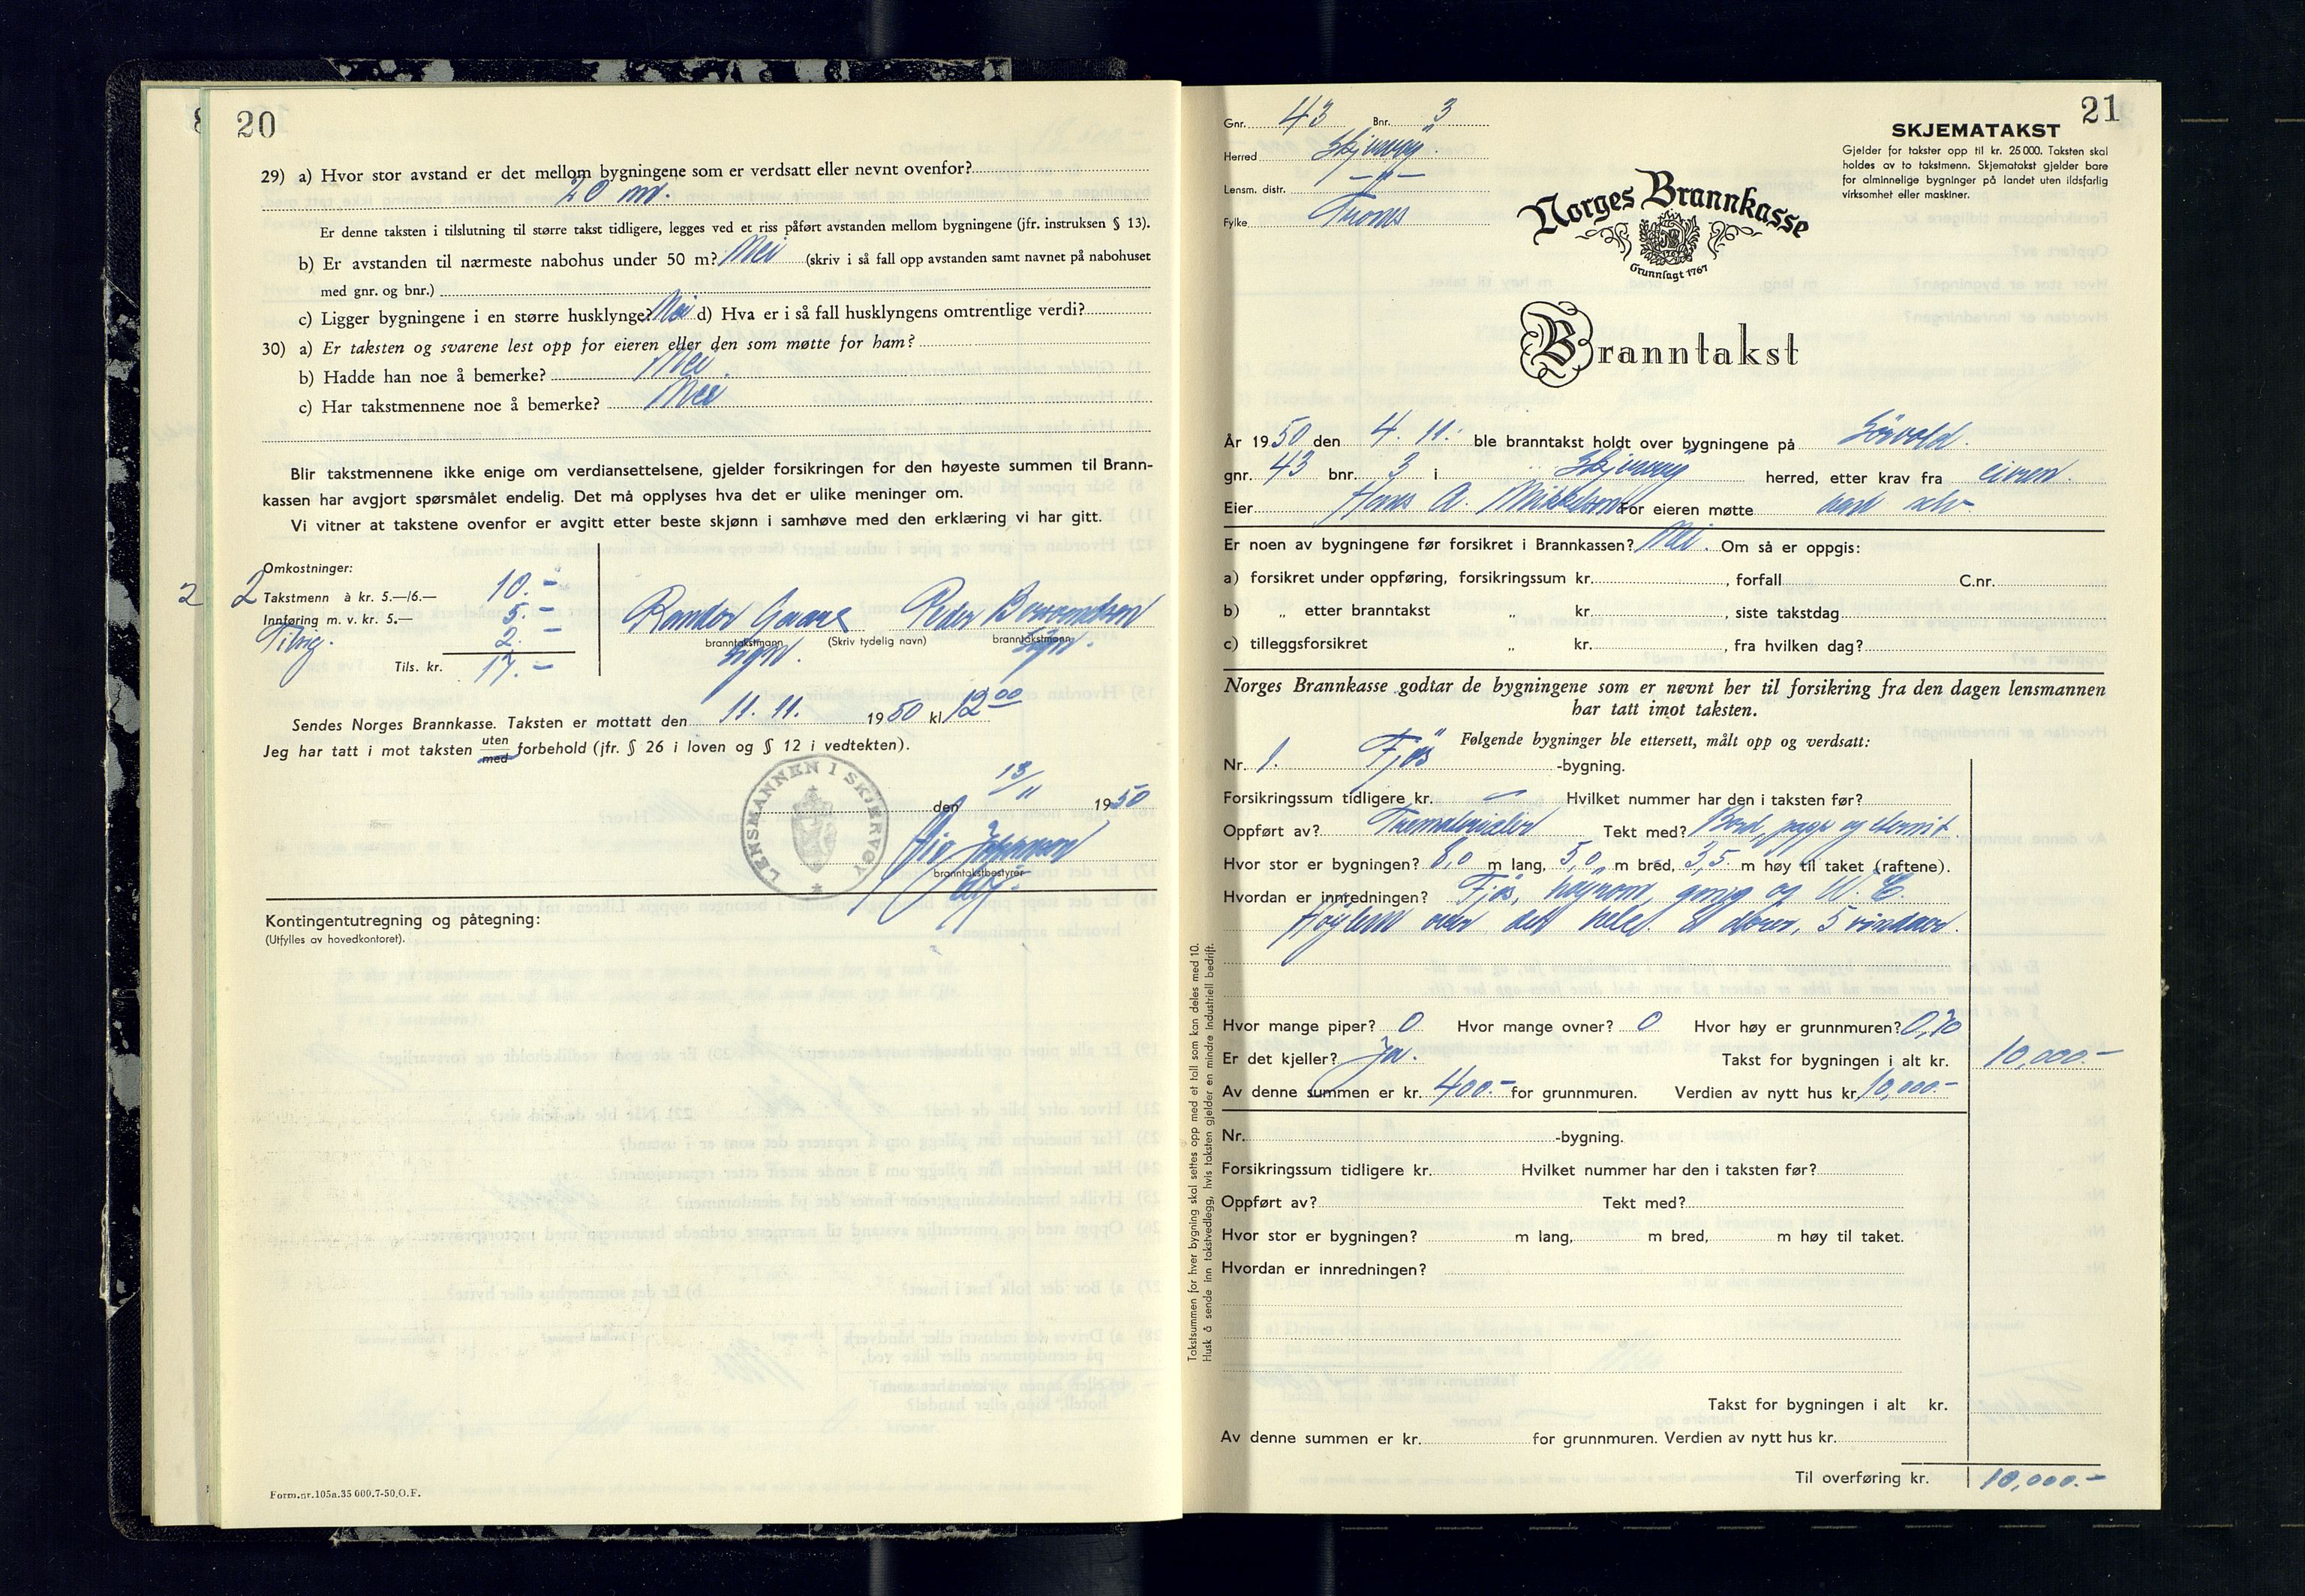 20
29) a) Hvor stor avstand er det mellom bygningene som er verdsatt eller nevnt ovenfor?
20 m.
Er denne taksten i tilslutning til større takst tidligere, legges ved et riss påført avstanden mellom bygningene (jfr. instruksen § 13).
b) Er avstanden til nærmeste nabohus under 50 m? Nei (skriv i så fall opp avstanden samt navnet på nabohuset
med gnr. og bnr.)
c) Ligger bygningene i en større husklynge? Nei d) Hva er i så fall husklyngens omtrentlige verdi?
30) a) Er taksten og svarene lest opp for eieren eller den som møtte for ham?
b) Hadde han noe å bemerke? Nei
c) Har takstmennene noe å bemerke? Nei
Blir takstmennene ikke enige om verdiansettelsene, gjelder forsikringen for den høyeste summen til Brann-
kassen har avgjort spørsmålet endelig. Det må opplyses hva det er ulike meninger om.
Vi vitner at takstene ovenfor er avgitt etter beste skjønn i samhøve med den erklæring vi har gitt.
Omkostninger:
2 2 Takstmenn à kr. 5.—/6.— 10.-
Innføring m. v. kr. 5.— 5.-
2.-
Tils. kr. 17.-
Peder
branntakstmann (Skriv tydelig navn) branntakstmann
sign. sign.
Sendes Norges Brannkasse. Taksten er mottatt den 11. 11. 1950 kl 12 00
Jeg har tatt i mot taksten uten
med forbehold (jfr. § 26 i loven og § 12 i vedtekten).
LENSMANNEN I SKJERVØY
den 13/11 1950
branntakstbestyrer
Kontingentutregning og påtegning:
(Utfylles av hovedkontoret).
Form.nr.105a.35 000.7-50,O.F.
21
Gnr. 43 Bnr. 3
Herred Skjervøy
Lensm. distr. -"-
Fylke Troms
SKJEMATAKST
Gjelder for takster opp til kr. 25 000. Taksten skal
holdes av to takstmenn. Skjematakst gjelder bare
for alminnelige bygninger på landet uten ildsfarlig
virksomhet eller maskiner.
Norges Brannkasse
Grunnlagt 1767
Branntakst
År 1950 den 4. 11. ble branntakst holdt over bygningene på Sörvold.
gnr. 43 bnr. 3 i Skjervöy herred, etter krav fra eieren.
Eier Hans A. Mikkelsen For eieren møtte han selv
Er noen av bygningene før forsikret i Brannkassen? Nei. Om så er oppgis:
a) forsikret under oppføring, forsikringssum kr. , forfall C.nr.
b) „ etter branntakst „ kr. , siste takstdag
c) tilleggsforsikret „ kr. , fra hvilken dag?
Norges Brannkasse godtar de bygningene som er nevnt her til forsikring fra den dagen lensmannen
har tatt imot taksten.
Følgende bygninger ble ettersett, målt opp og verdsatt:
Nr. 1. Fjös -bygning.
Forsikringssum tidligere kr. - Hvilket nummer har den i taksten før?
Oppført av? Trematerialer Tekt med? Bord, papp og eternit.
Hvor stor er bygningen? 8,0 m lang, 5,0 m bred, 3,5 m høy til taket (raftene).
Hvordan er innredningen? Fjös, höyrom, gang og W. C.
Höylem over det hele. 2 dörer, 5 vinduer.
Hvor mange piper? 0 Hvor mange ovner? 0 Hvor høy er grunnmuren? 0,70
Er det kjeller? Ja. Takst for bygningen i alt kr. 10,000.-
Av denne summen er kr. 400.- for grunnmuren. Verdien av nytt hus kr. 10,000.-
Nr. -bygning.
Forsikringssum tidligere kr. Hvilket nummer har den i taksten før?
Oppført av? Tekt med?
Hvor stor er bygningen? m lang, m bred, m høy til taket.
Hvordan er innredningen?
Takst for bygningen i alt kr.
Av denne summen er kr. for grunnmuren. Verdien av nytt hus kr.
Til overføring kr. 10,000.-
Takstsummen for hver bygning skal settes opp med et tall som kan deles med 10.
Husk å sende inn takstvedlegg, hvis taksten gjelder en mindre industriell bedrift.